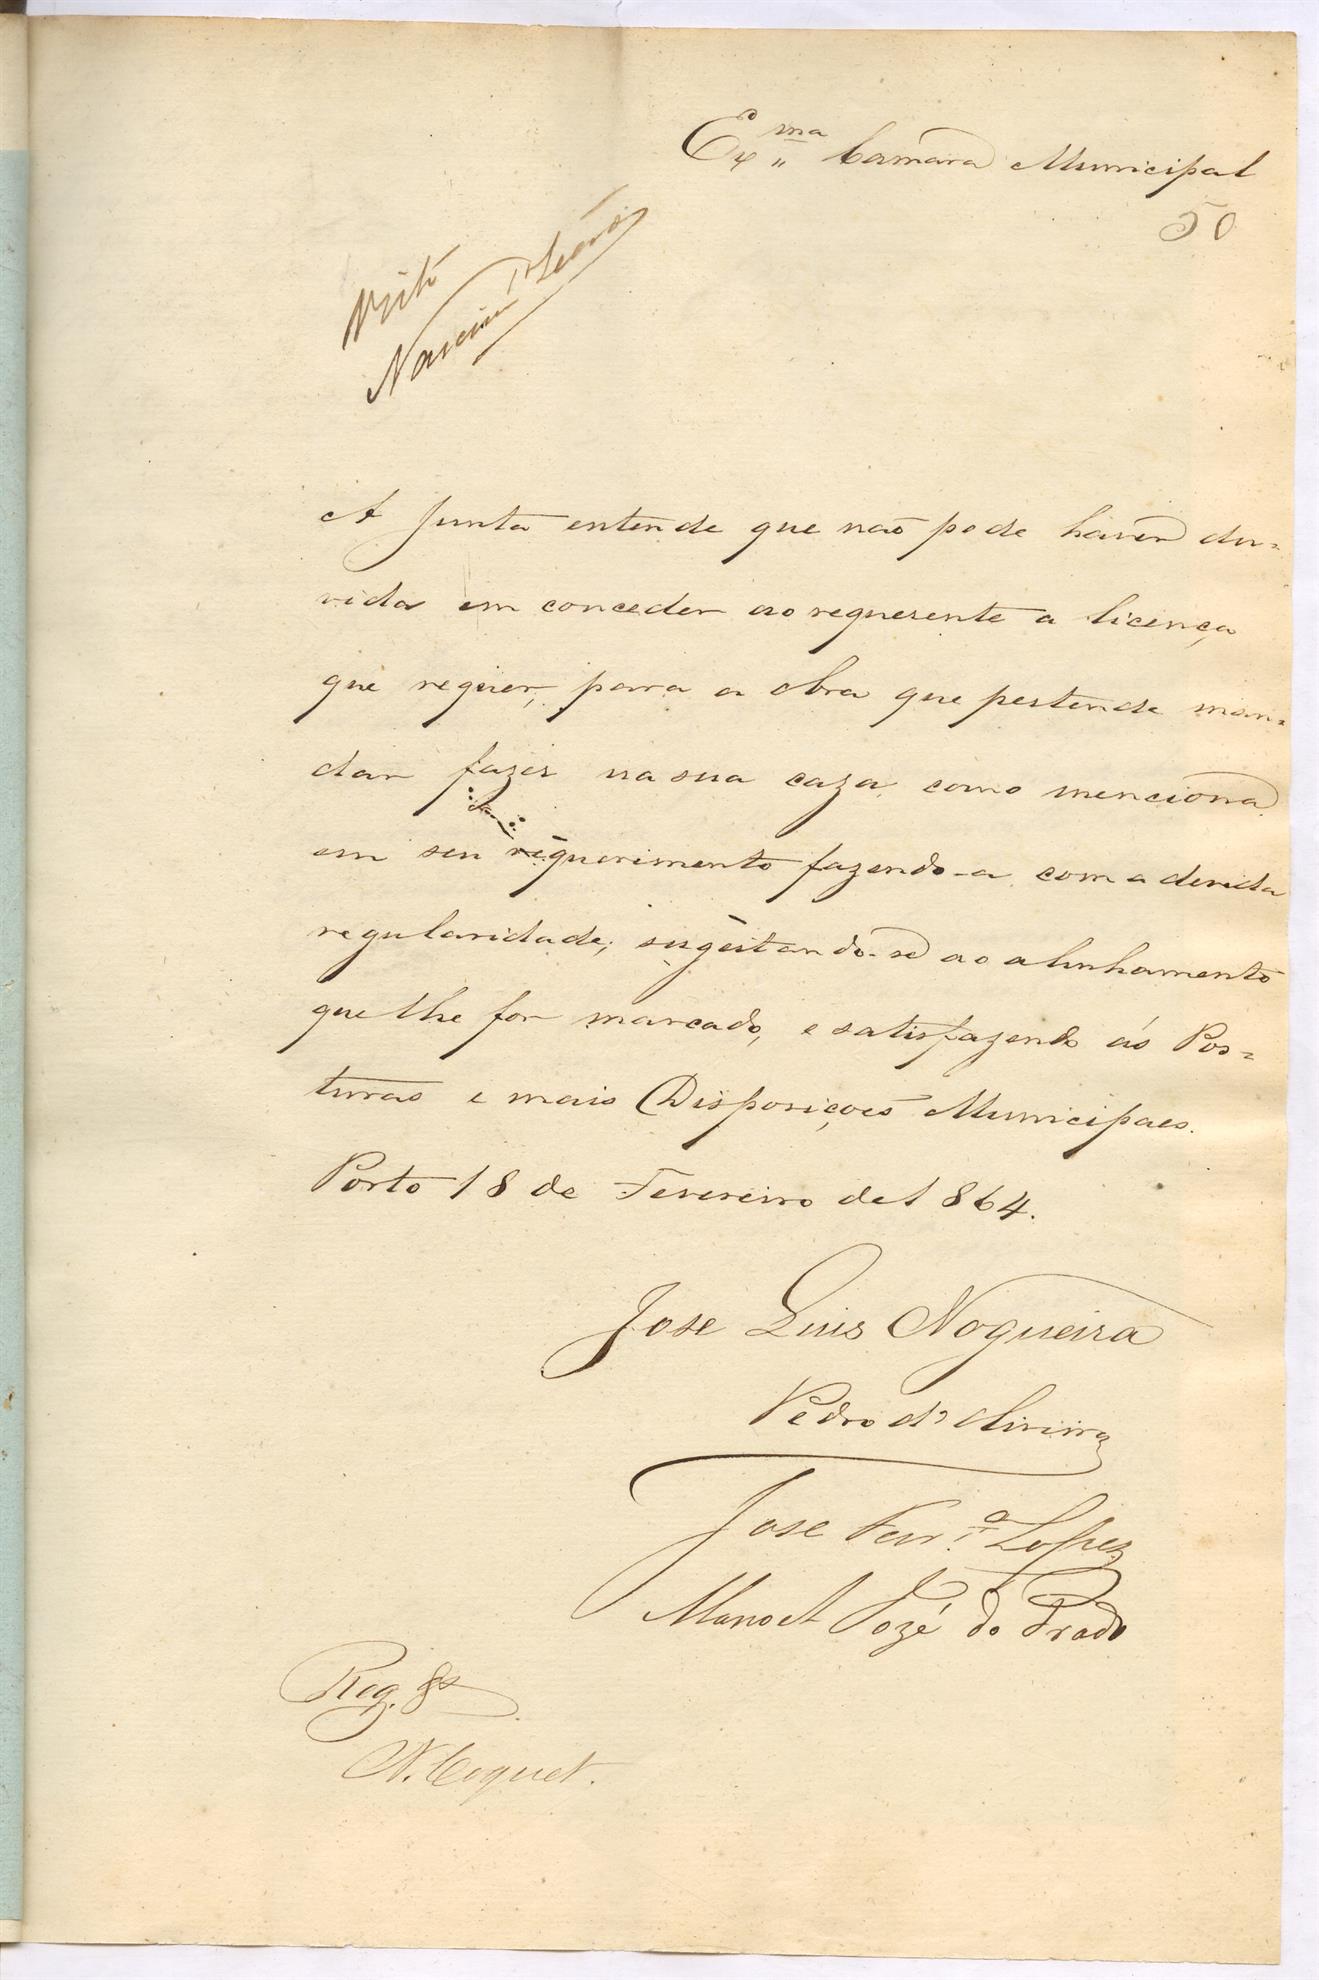 Exma Camara Municipal
50
Visto
Nascimto Leão
A Junta entende que não pode haver du=
vida em conceder ao requerente a licença,
que requer, para a obra que pertende man=
dar fazer na sua caza, como menciona
em seu requerimento fazendo-a com a devida
regularidade; sugeitando-se ao alinhamento
que lhe for marcado, e satisfazendo ás Pos=
turas e mais Disposições Municipaes.
Porto 18 de Fevereiro de 1864.
Jose Luis Nogueira
Pedro d'Oliveira
Jose Ferra Lopez
Manoel Jozé do Prado
Reg.
N. Coquet.